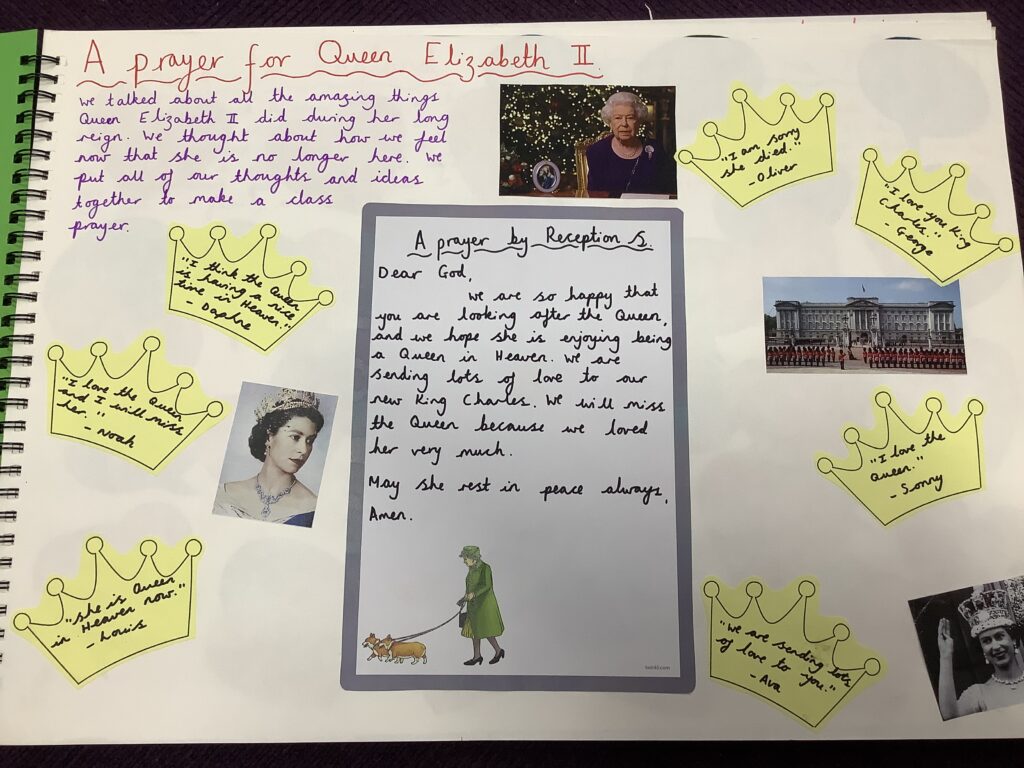 A prayer for Queen Elizabeth II.
we talked about all the amazing things
Queen Elizabeth II did during her long
reign. We thought about how we feel
now that she is no longer here. We
put all of our thoughts and ideas
together to make a class
prayer.
"I think the Queen
is having a nice
time in Heaven."
- Daphne
"I love the Queen
and I will miss
her."
- Noah
"She is Queen
in Heaven now."
- Louis
A prayer by Reception S.
Dear God,
We are so happy that
you are looking after the Queen,
and we hope she is enjoying being
a Queen in Heaven. We are
sending lots of love to our
new King Charles. We will miss
the Queen because we loved
her very much.
May she rest in peace always,
Amen.
twinkl.com
"I am sorry
she died."
- Oliver
"I love you King
Charles."
- George
"I love the
Queen."
- Sonny
"We are sending lots
of love to you."
- Ava